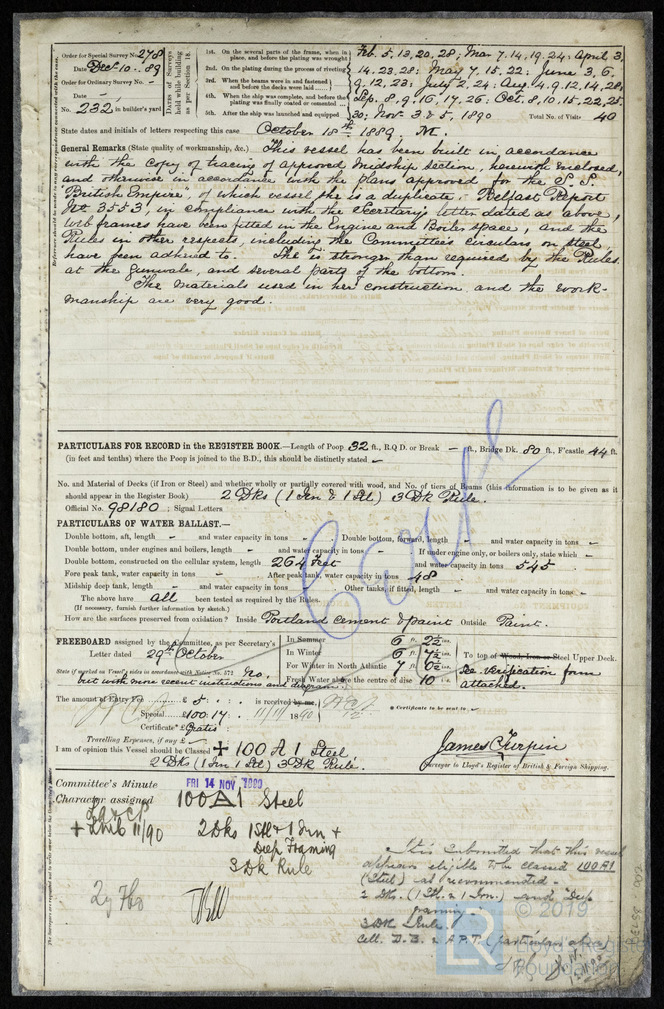 Order for Special Survey No. 278
Date Dec. 10. 89
Order for Ordinary Survey No. -
Date -
No. 232 in builder's yard
Dates of Surveys held while building as per Section 18.
1st. On the several parts of the frame, when in place, and before the plating was wrought
2nd. On the plating during the process of riveting
3rd. When the beams were in and fastened and before the decks were laid
4th. When the ship was complete, and before the plating was finally coated or cemented
5th. After the ship was launched and equipped
Feb. 5, 13, 20, 28; Mar 7. 14. 19. 24; April 3,
14, 23, 28; May 7, 15, 22; June 3, 6,
9, 12, 23; July 2, 24; Aug. 4, 9, 12, 14, 28,
Sep. 8, 9, 16, 17, 26; Oct. 8, 10, 15, 22, 25,
30; Nov. 3 & 5, 1890
Total No. of Visits 40
State dates and initials of letters respecting this case October 18th 1889. M.
General Remarks (State quality of workmanship, &c.) This vessel has been built in accordance
with the copy of tracing of approved Midship section, herewith enclosed,
and otherwise in accordance with the plans approved for the S.S.
"British Empire", of which vessel she is a duplicate. Belfast Report
No. 3553, in compliance with the Secretary's letter dated as above,
Web frames have been fitted in the Engine and Boiler space, and the
Rules in other respects, including the Committee's circulars on steel,
have been adhered to. She is stronger than required by the Rules
at the gunwale, and several parts of the bottom.
The materials used in her construction and the work-
manship are very good.
PARTICULARS FOR RECORD in the REGISTER BOOK.—Length of Poop 32 ft., R.Q.D. or Break - ft., Bridge Dk. 80 ft., F'castle 44 ft.
(in feet and tenths) where the Poop is joined to the B.D., this should be distinctly stated -
No. and Material of Decks (if Iron or Steel) and whether wholly or partially covered with wood, and No. of tiers of Beams (this information is to be given as it
should appear in the Register Book) 2 Dks (1 Irn & 1 Stl) 3 Dk Rule.
Official No. 98180; Signal Letters
PARTICULARS OF WATER BALLAST.—
Double bottom, aft, length - and water capacity in tons - Double bottom, forward, length - and water capacity in tons -
Double bottom, under engines and boilers, length - and water capacity in tons - If under engine only, or boilers only, state which -
Double bottom, constructed on the cellular system, length 264 feet and water capacity in tons 545
Fore peak tank, water capacity in tons - After peak tank, water capacity in tons 48
Midship deep tank, length - and water capacity in tons - Other tanks, if fitted, length - and water capacity in tons -
The above have all been tested as required by the Rules.
(If necessary, furnish further information by sketch.)
How are the surfaces preserved from oxidation? Inside Portland cement & paint Outside Paint.
FREEBOARD assigned by the Committee, as per Secretary's
Letter dated 29th October
State if marked on Vessel's sides in accordance with Notice No. 572 No,
but with more recent instructions and diagram.
In Summer 6 ft. 2½ ins.
In Winter 6 ft. 7½ ins.
For Winter in North Atlantic 7 ft. 0½ ins.
Fresh Water above the centre of disc 10 ins.
To top of Wood, Iron or Steel Upper Deck.
See verification form
attached.
The amount of Entry Fee £ 5 : : is received by me,
Special £100. 17. 11/11/1890
Certificate * £ Gratis :
* Certificate to be sent to
Travelling Expenses, if any £
I am of opinion this Vessel should be Classed + 100 A 1 Steel
2 Dks (1 Irn 1 Stl) 3 Dk Rule.
James Turpin
Surveyor to Lloyd's Register of British & Foreign Shipping.
Committee's Minute FRI 14 NOV 1890
Character assigned 100A1 Steel
+ LMC 11/90
2 Dks 1 Stl & 1 Irn +
Deep Framing
3 Dk Rule
It is submitted that this vessel
appears eligible to be classed 100A1
(Steel) as recommended.
2 Dks. (1 Stl. & 1 Irn.) and Deep
framing
3 Dk Rule
Cell. D.B. & A.P.T. (particulars above)
LR
© 2019
Lloyd's Register
Foundation